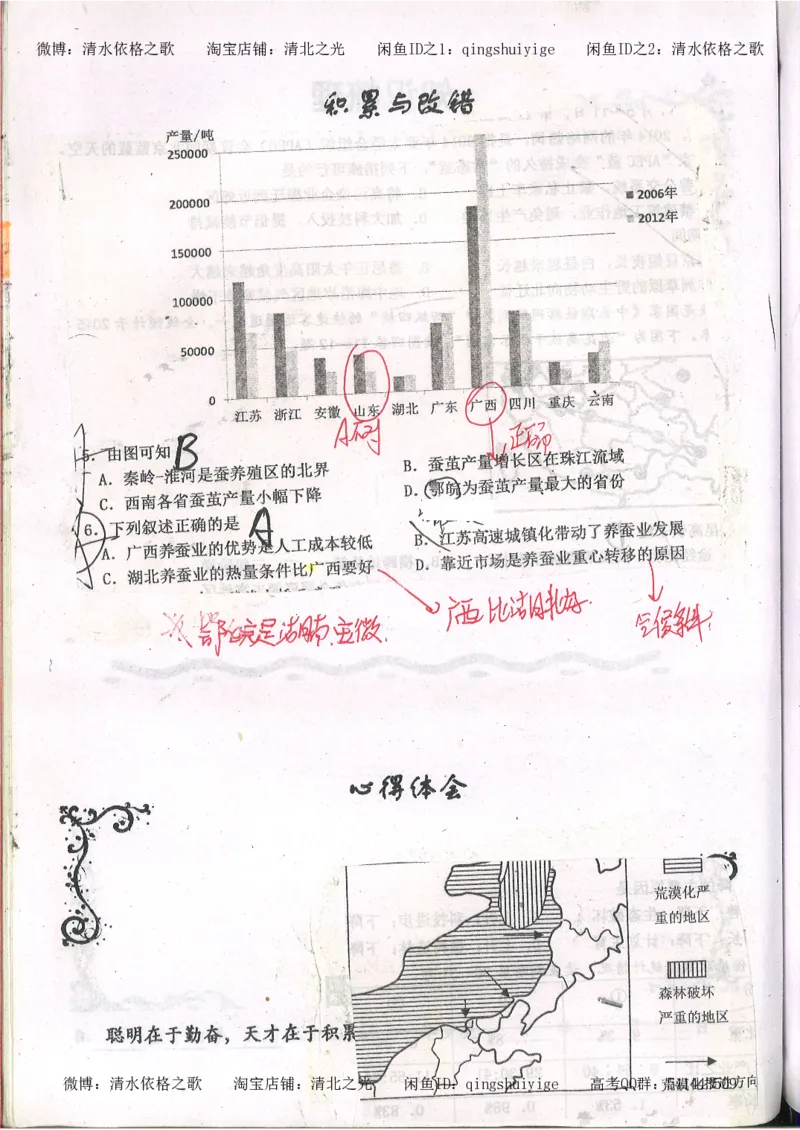 微博：清水依格之歌 淘宝店铺：清北之光 闲鱼ID之1：qingshuiyige 闲鱼ID之2：清水依格之歌
积累与改错
产量/吨
250000
200000
150000
100000
50000
0
2006年
2012年
江苏 浙江 安徽 山东 湖北 广东 广西 四川 重庆 云南
A碍
正确
5. 由图可知 B
A. 秦岭-淮河是蚕养殖区的北界
B. 蚕茧产量增长区在珠江流域
C. 西南各省蚕茧产量小幅下降
D. 鄂为蚕茧产量最大的省份
6. 下列叙述正确的是 A
A. 广西养蚕业的优势是人工成本较低
B. 江苏高速城镇化带动了养蚕业发展
C. 湖北养蚕业的热量条件比广西要好
D. 靠近市场是养蚕业重心转移的原因
广西比湖北好.
心得体会
荒漠化严
重的地区
森林破坏
严重的地区
聪明在于勤奋，天才在于积累
微博：清水依格之歌 淘宝店铺：清北之光 闲鱼ID：qingshuiyige 高考QQ群：